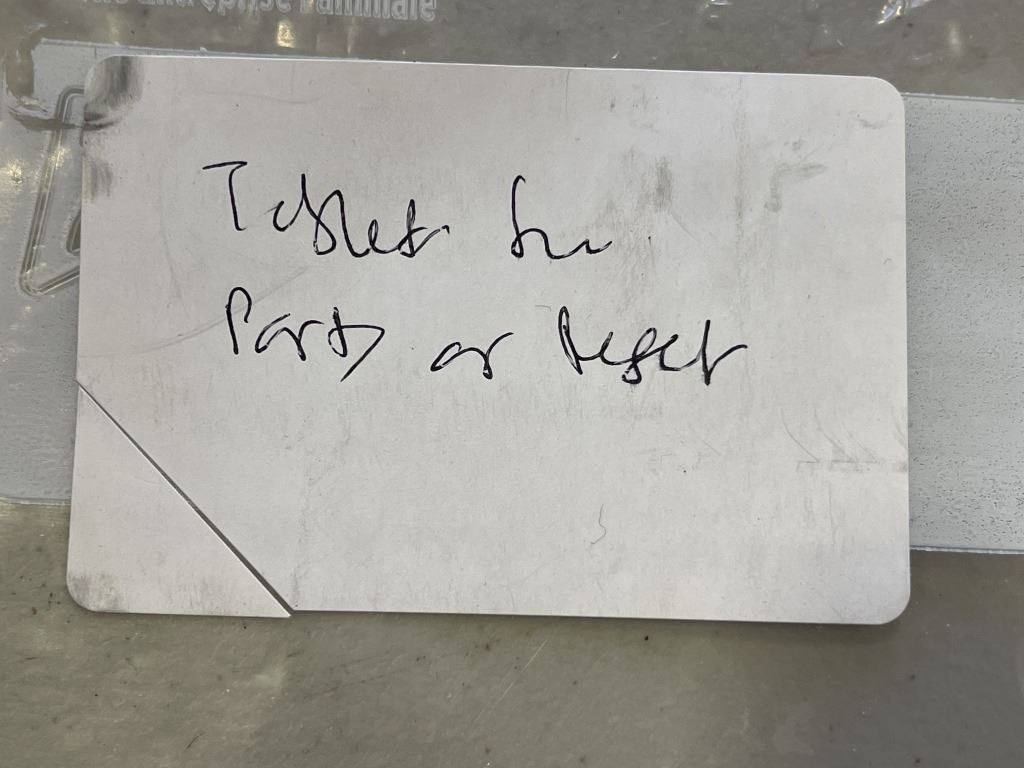 Entreprise Familiale
Tablet for
Parts or Reset